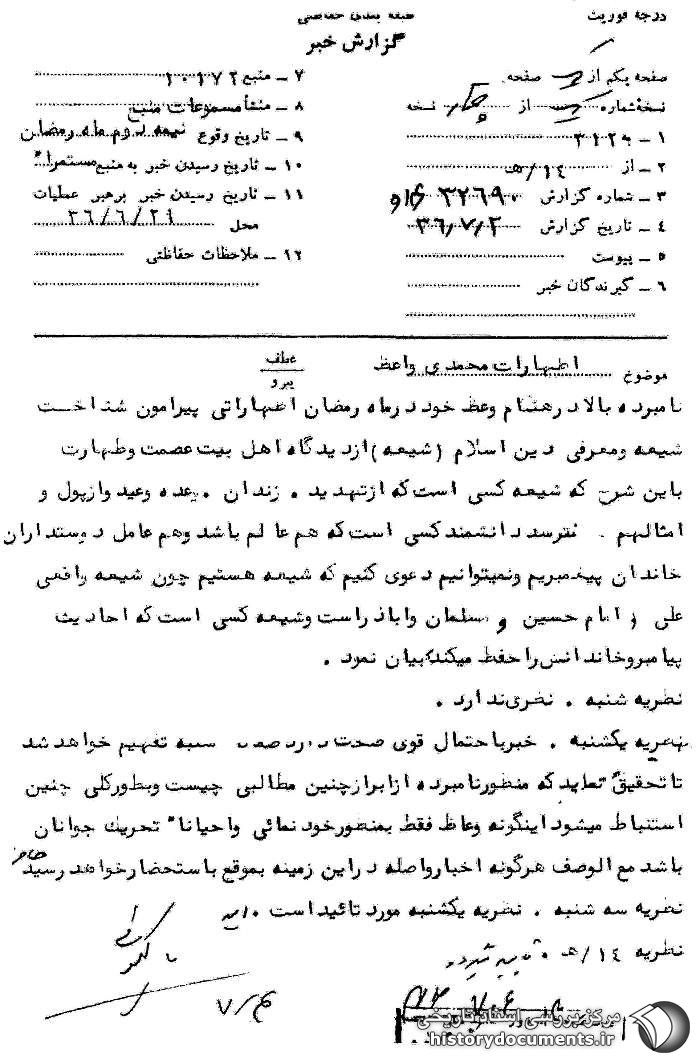 درجه فوریت
طبقه بندی حفاظتی
گزارش خبر
صفحه یکم از یک صفحه
نسخه شماره یک از چهار نسخه
۱ ـ به ۳۱۲
۲ ـ از ۱۴/ هـ
۳ ـ شماره گزارش ۳۲۶۹۰
۴ ـ تاریخ گزارش ۳۶/۷/۲
۵ ـ پیوست
۶ ـ گیرندگان خبر
۷ ـ منبع ۱۰۱۷۲
۸ ـ منشأ مسموعات منبع
۹ ـ تاریخ وقوع نیمه دوم ماه رمضان
۱۰ ـ تاریخ رسیدن خبر به منبع مستمراً
۱۱ ـ تاریخ رسیدن خبر برهبر عملیات
محل ۳۶/۶/۲۹
۱۲ ـ ملاحظات حفاظتی
موضوع اظهارات محمدی واعظ
عطف
پیرو
نامبرده بالا در هنگام وعظ خود در ماه رمضان اظهاراتی پیرامون شناخت
شیعه ومعرفی دین اسلام (شیعه) ازدیدگاه اهل بیت عصمت وطهارت
باین شرح که شیعه کسی است که ازتهدید . زندان . وعده وعید وازپول و
امثالهم . نترسد دانشمند کسی است که هم عالم باشد وهم عامل دوستداران
خاندان پیغمبریم ونمیتوانیم دعوی کنیم که شیعه هستیم چون شیعه واقعی
علی و امام حسین و مسلمان واباذر است وشیعه کسی است که احادیث
پیامبر وخاندانش را حفظ میکند بیان نمود .
نظریه شنبه . نظری ندارد .
نظریه یکشنبه . خبر با احتمال قوی صحت دارد ضمناً شنبه تفهیم خواهد شد
تا تحقیق نماید که منظور نامبرده از ابراز چنین مطالبی چیست وبطورکلی چنین
استنباط میشود اینگونه وعاظ فقط بمنظور خود نمائی واحیاناً تحریك جوانان
باشد مع الوصف هرگونه اخبار واصله در این زمینه بموقع باستحضار خواهد رسید
نظریه سه شنبه . نظریه یکشنبه مورد تائید است .
نظریه ۱۴/ هـ .
مرکز بررسی اسناد تاریخی
historydocuments.ir